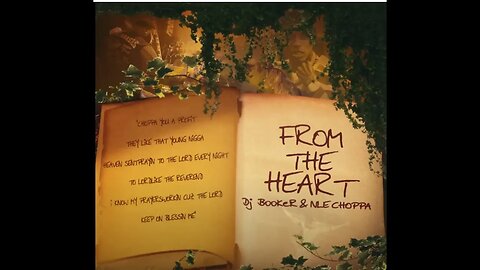 "CHOPPA YOU A PROFIT
THEY LIKE THAT YOUNG NIGGA
HEAVEN SENTPRAYIN TO THE LORD EVERY NIGHT
TO LORDLIKE THE REVEREND
I KNOW MY PRAYERSWORKIN CUZ THE LORD
KEEP ON BLESSIN ME"
FROM
THE
HEART
Dj BOOKER & NLE CHOPPA